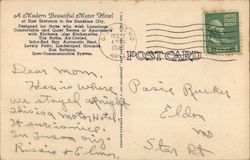 A Modern Beautiful Motor Hotel
at East Entrance to the Sunshine City.
Designed for those who wish Luxurious
Comfortable and Quiet Rooms or Apartments
with Kitchens, also Kitchenettes.
Tile Baths, Air-Cooled.
Infra-Red Ray Automatic Heat.
Lovely Patio, Landscaped Grounds.
Sun Bathing.
Inter-Communication System.
POST CARD
Dear Mom.
Here is where
we stayed
this is a motor Hotel
it sure is nice.
Rosie & Elmer.
Rucker
Eldon
Mo
Star Rt